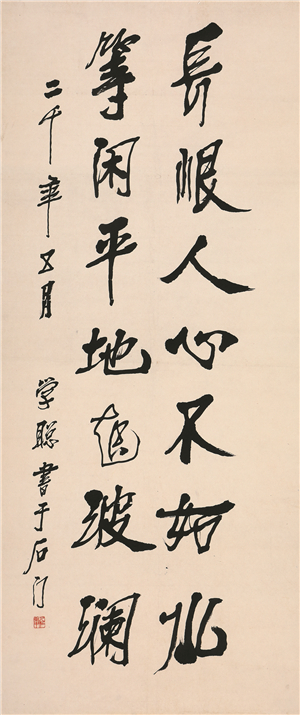 长恨人心不如水
等闲平地起波澜
二千年五月 学聪书于石门